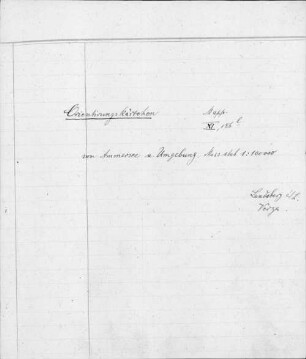 Orientirungskärtchen
Mapp.
XI, 156 b
von Ammersee u. Umgebung. Massstab 1:100000
Landsberg a/L.
Verza